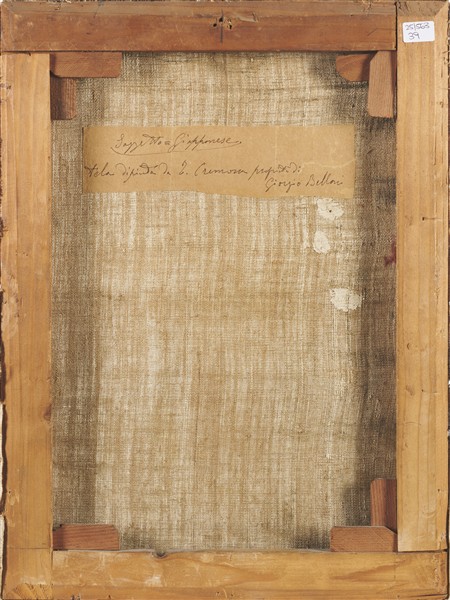 251563
39
Soggetto Giapponese
tela dipinta da T. Cremona proprietà di
Giorgio Bellani